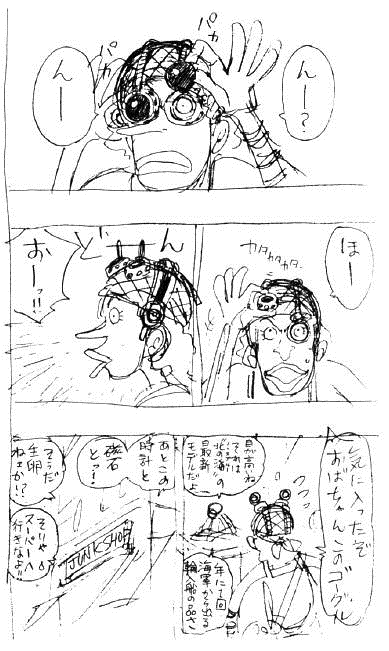 んー?
パカ
パカ
んー
ほー
カタカタカタ‥
ん
ど
おーッ!!
気に入ったぞ
おばちゃんこのゴーグル
目が高いね
それは
“北の海”の
最新
モデルだよ
年に1回
海軍から出る
輸入船の品さ
あとこの
時計と
磁石
とッ!
そうだ
生卵
ねェか!?
そりゃ
スーパーへ
行きなよ!!
JUNK SHOP